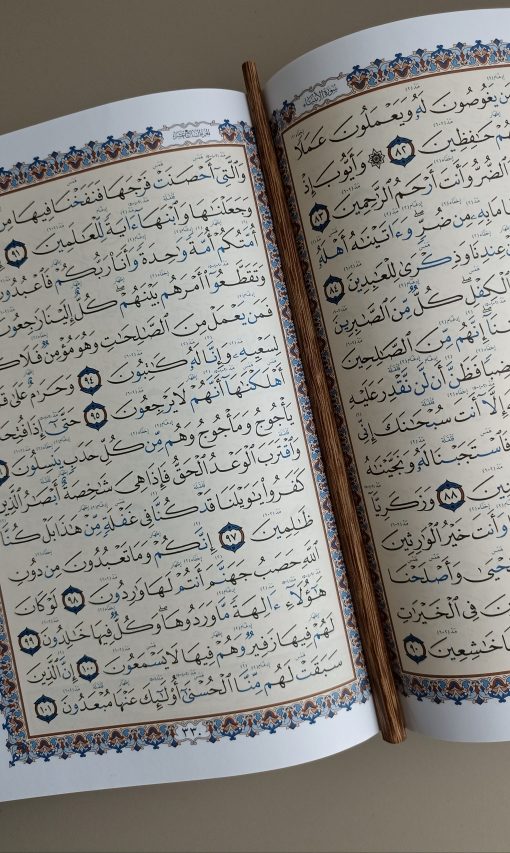 سُورَةُ الأَنبِيَاء
مَن يَغُوصُونَ لَهُۥ وَيَعْمَلُونَ عَمَلًا
لَهُمْ حَٰفِظِينَ ٨٢ ۞ وَأَيُّوبَ إِذْ
ٱلضُّرُّ وَأَنتَ أَرْحَمُ ٱلرَّٰحِمِينَ ٨٣
مَا بِهِۦ مِن ضُرٍّۢ ۖ وَءَاتَيْنَٰهُ أَهْلَهُۥ
عِندِنَا وَذِكْرَىٰ لِلْعَٰبِدِينَ ٨٤
ٱلْكِفْلِ ۖ كُلٌّۭ مِّنَ ٱلصَّٰبِرِينَ
إِنَّهُم مِّنَ ٱلصَّٰلِحِينَ
فَظَنَّ أَن لَّن نَّقْدِرَ عَلَيْهِ
إِلَّآ أَنتَ سُبْحَٰنَكَ إِنِّى
فَٱسْتَجَبْنَا لَهُۥ وَنَجَّيْنَٰهُ
٨٨ وَزَكَرِيَّآ
وَأَنتَ خَيْرُ ٱلْوَٰرِثِينَ
يَحْيَىٰ وَأَصْلَحْنَا
فِى ٱلْخَيْرَٰتِ
خَٰشِعِينَ ٩٠
وَٱلَّتِىٓ أَحْصَنَتْ فَرْجَهَا فَنَفَخْنَا فِيهَا مِن
وَجَعَلْنَٰهَا وَٱبْنَهَآ ءَايَةًۭ لِّلْعَٰلَمِينَ ٩١
أُمَّتُكُمْ أُمَّةًۭ وَٰحِدَةًۭ وَأَنَا۠ رَبُّكُمْ فَٱعْبُدُونِ
وَتَقَطَّعُوٓا۟ أَمْرَهُم بَيْنَهُمْ ۖ كُلٌّ إِلَيْنَا رَٰجِعُونَ
فَمَن يَعْمَلْ مِنَ ٱلصَّٰلِحَٰتِ وَهُوَ مُؤْمِنٌۭ فَلَا
لِسَعْيِهِۦ وَإِنَّا لَهُۥ كَٰتِبُونَ ٩٤ وَحَرَٰمٌ عَلَىٰ
أَهْلَكْنَٰهَآ أَنَّهُمْ لَا يَرْجِعُونَ ٩٥ حَتَّىٰٓ إِذَا فُتِحَتْ
يَأْجُوجُ وَمَأْجُوجُ وَهُم مِّن كُلِّ حَدَبٍۢ يَنسِلُونَ
وَٱقْتَرَبَ ٱلْوَعْدُ ٱلْحَقُّ فَإِذَا هِىَ شَٰخِصَةٌ أَبْصَٰرُ ٱلَّذِينَ
كَفَرُوا۟ يَٰوَيْلَنَا قَدْ كُنَّا فِى غَفْلَةٍۢ مِّنْ هَٰذَا بَلْ كُنَّا
ظَٰلِمِينَ ٩٧ إِنَّكُمْ وَمَا تَعْبُدُونَ مِن دُونِ
ٱللَّهِ حَصَبُ جَهَنَّمَ أَنتُمْ لَهَا وَٰرِدُونَ ٩٨ لَوْ كَانَ
هَٰٓؤُلَآءِ ءَالِهَةًۭ مَّا وَرَدُوهَا ۖ وَكُلٌّۭ فِيهَا خَٰلِدُونَ ٩٩
لَهُمْ فِيهَا زَفِيرٌۭ وَهُمْ فِيهَا لَا يَسْمَعُونَ ١٠٠ إِنَّ ٱلَّذِينَ
سَبَقَتْ لَهُم مِّنَّا ٱلْحُسْنَىٰٓ أُو۟لَٰٓئِكَ عَنْهَا مُبْعَدُونَ ١٠١
٣٣٠